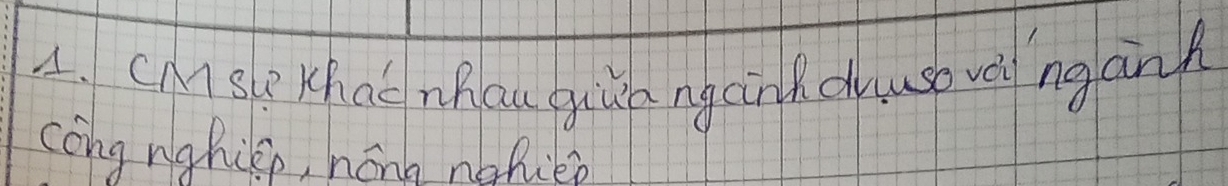 1. CM sự khác nhau giữa ngành dv so với ngành
công nghiệp, nông nghiệp